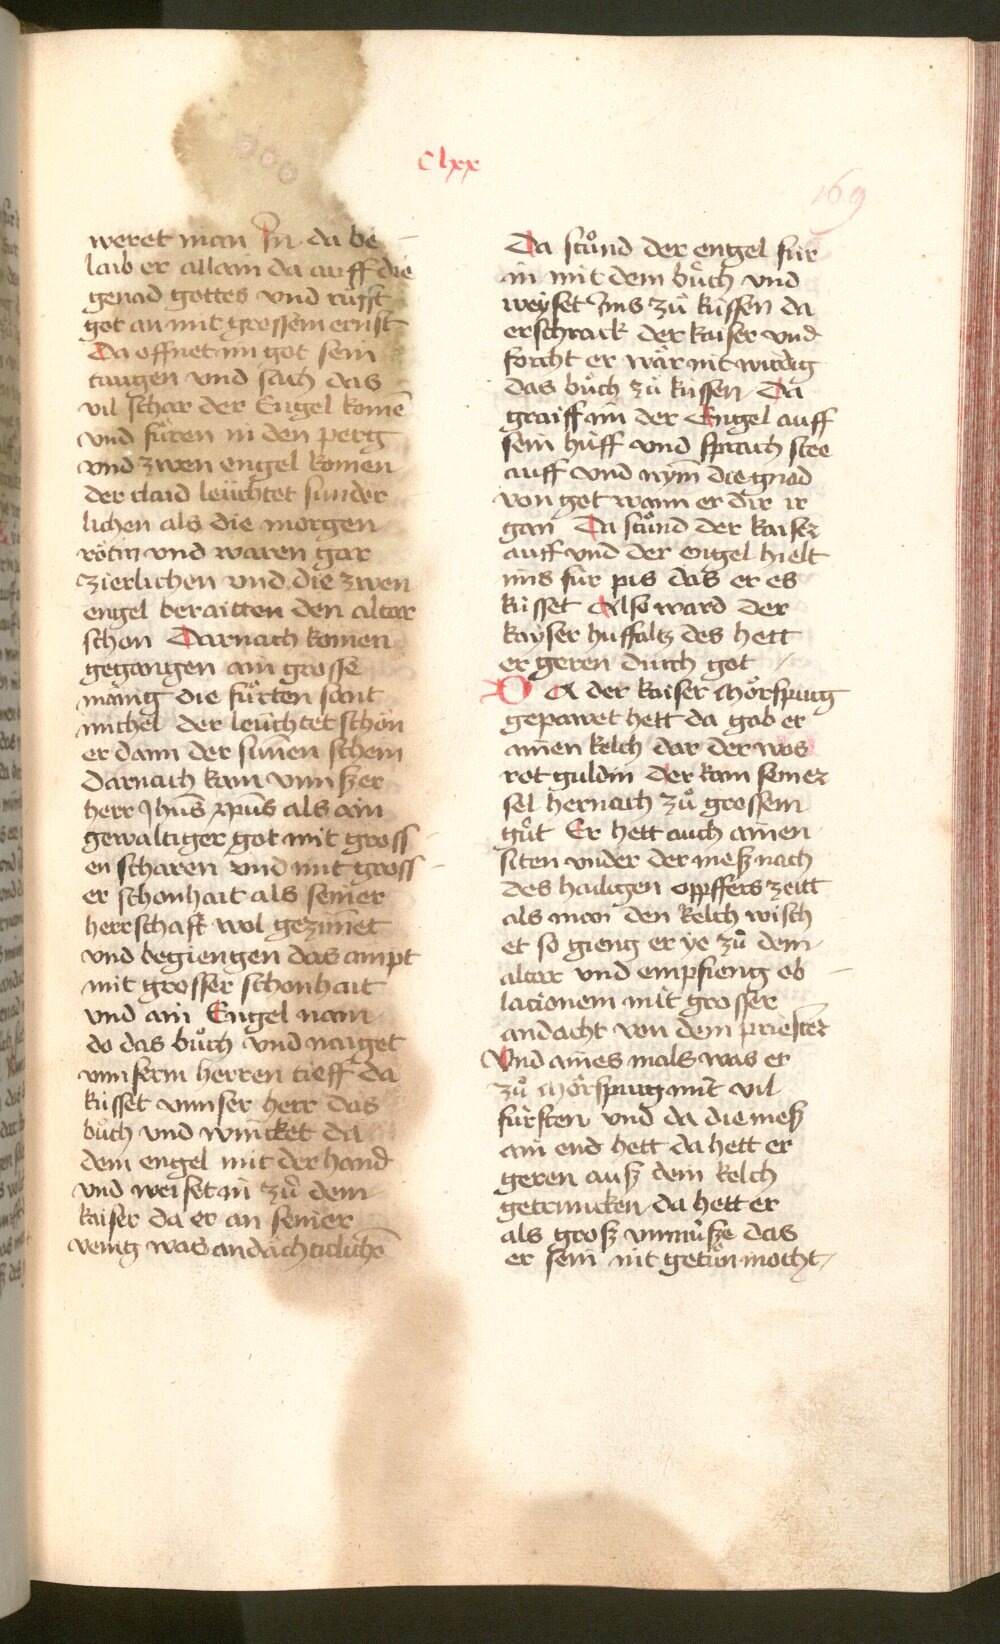 Clxx
169
weret man In da be
laib er allain da auff die
genad gottes vnd rüfft
got an mit grossem ernst
Da offnet im got sein
taugen vnd sach das
vil schar der Engel komē
vnd fůren in den perg
vnd zwen engel komen
der claid leüchtet sunder
lichen als die morgen
rötin vnd waren gar
zierlichen vnd die zwen
engel beraitten den altar
schon Darnach komen
gegangen ain grosse
mänig die fůrten sant
michel der leüchtet schön
er dann der sunnen schein
Darnach kam vnnszer
herr Jhūs xpūs als ain
gewaltiger got mit gross
en scharen vnd mit gross
er schonhait als seiner
herrschaft wol gezimet
vnd begiengen das ampt
mit grosser schonhait
vnd ain Engel nam
do das bůch vnd naiget
vnnserm herren tieff da
küsset vnnser herr das
bůch vnd wincket da
dem engel mit der hand
vnd weiset in zů dem
kaiser da er an seiner
venig was andächticlichē
Da stůnd der engel für
in mit dem bůch vnd
weyset Ims zů küssen da
erschrack der kaiser vnd
forcht er wär nit wirdig
das bůch zů küssen Da
graiff im der Engel auff
sein hüff vnd sprach stee
auff vnd nym die gnad
von got wann er dir ir
gan Da stůnd der kaiser
auff vnd der engel hielt
ims für pis das er es
küsset Also ward der
kayser huffaltz des hett
er geren durch got
DA der kaiser Mörspurg
gepawet hett da gab er
ainen kelch dar der was
rot guldin der kam seiner
sel hernach zů grossem
gůt Er hett auch ainen
siten vnder der mesz nach
des hailigen oppffers zeitt
als man den kelch wisch
et so gieng er ye zů dem
altar vnd empfieng ob
lacionem mit grosser
andacht von dem priester
Vnd aines mals was er
zů Mörspurg mit vil
fürsten vnd da die mesz
ain end hett da hett er
geren ausz dem kelch
getruncken da hett er
als grosz vnmůsze das
er sein nit getůn mocht